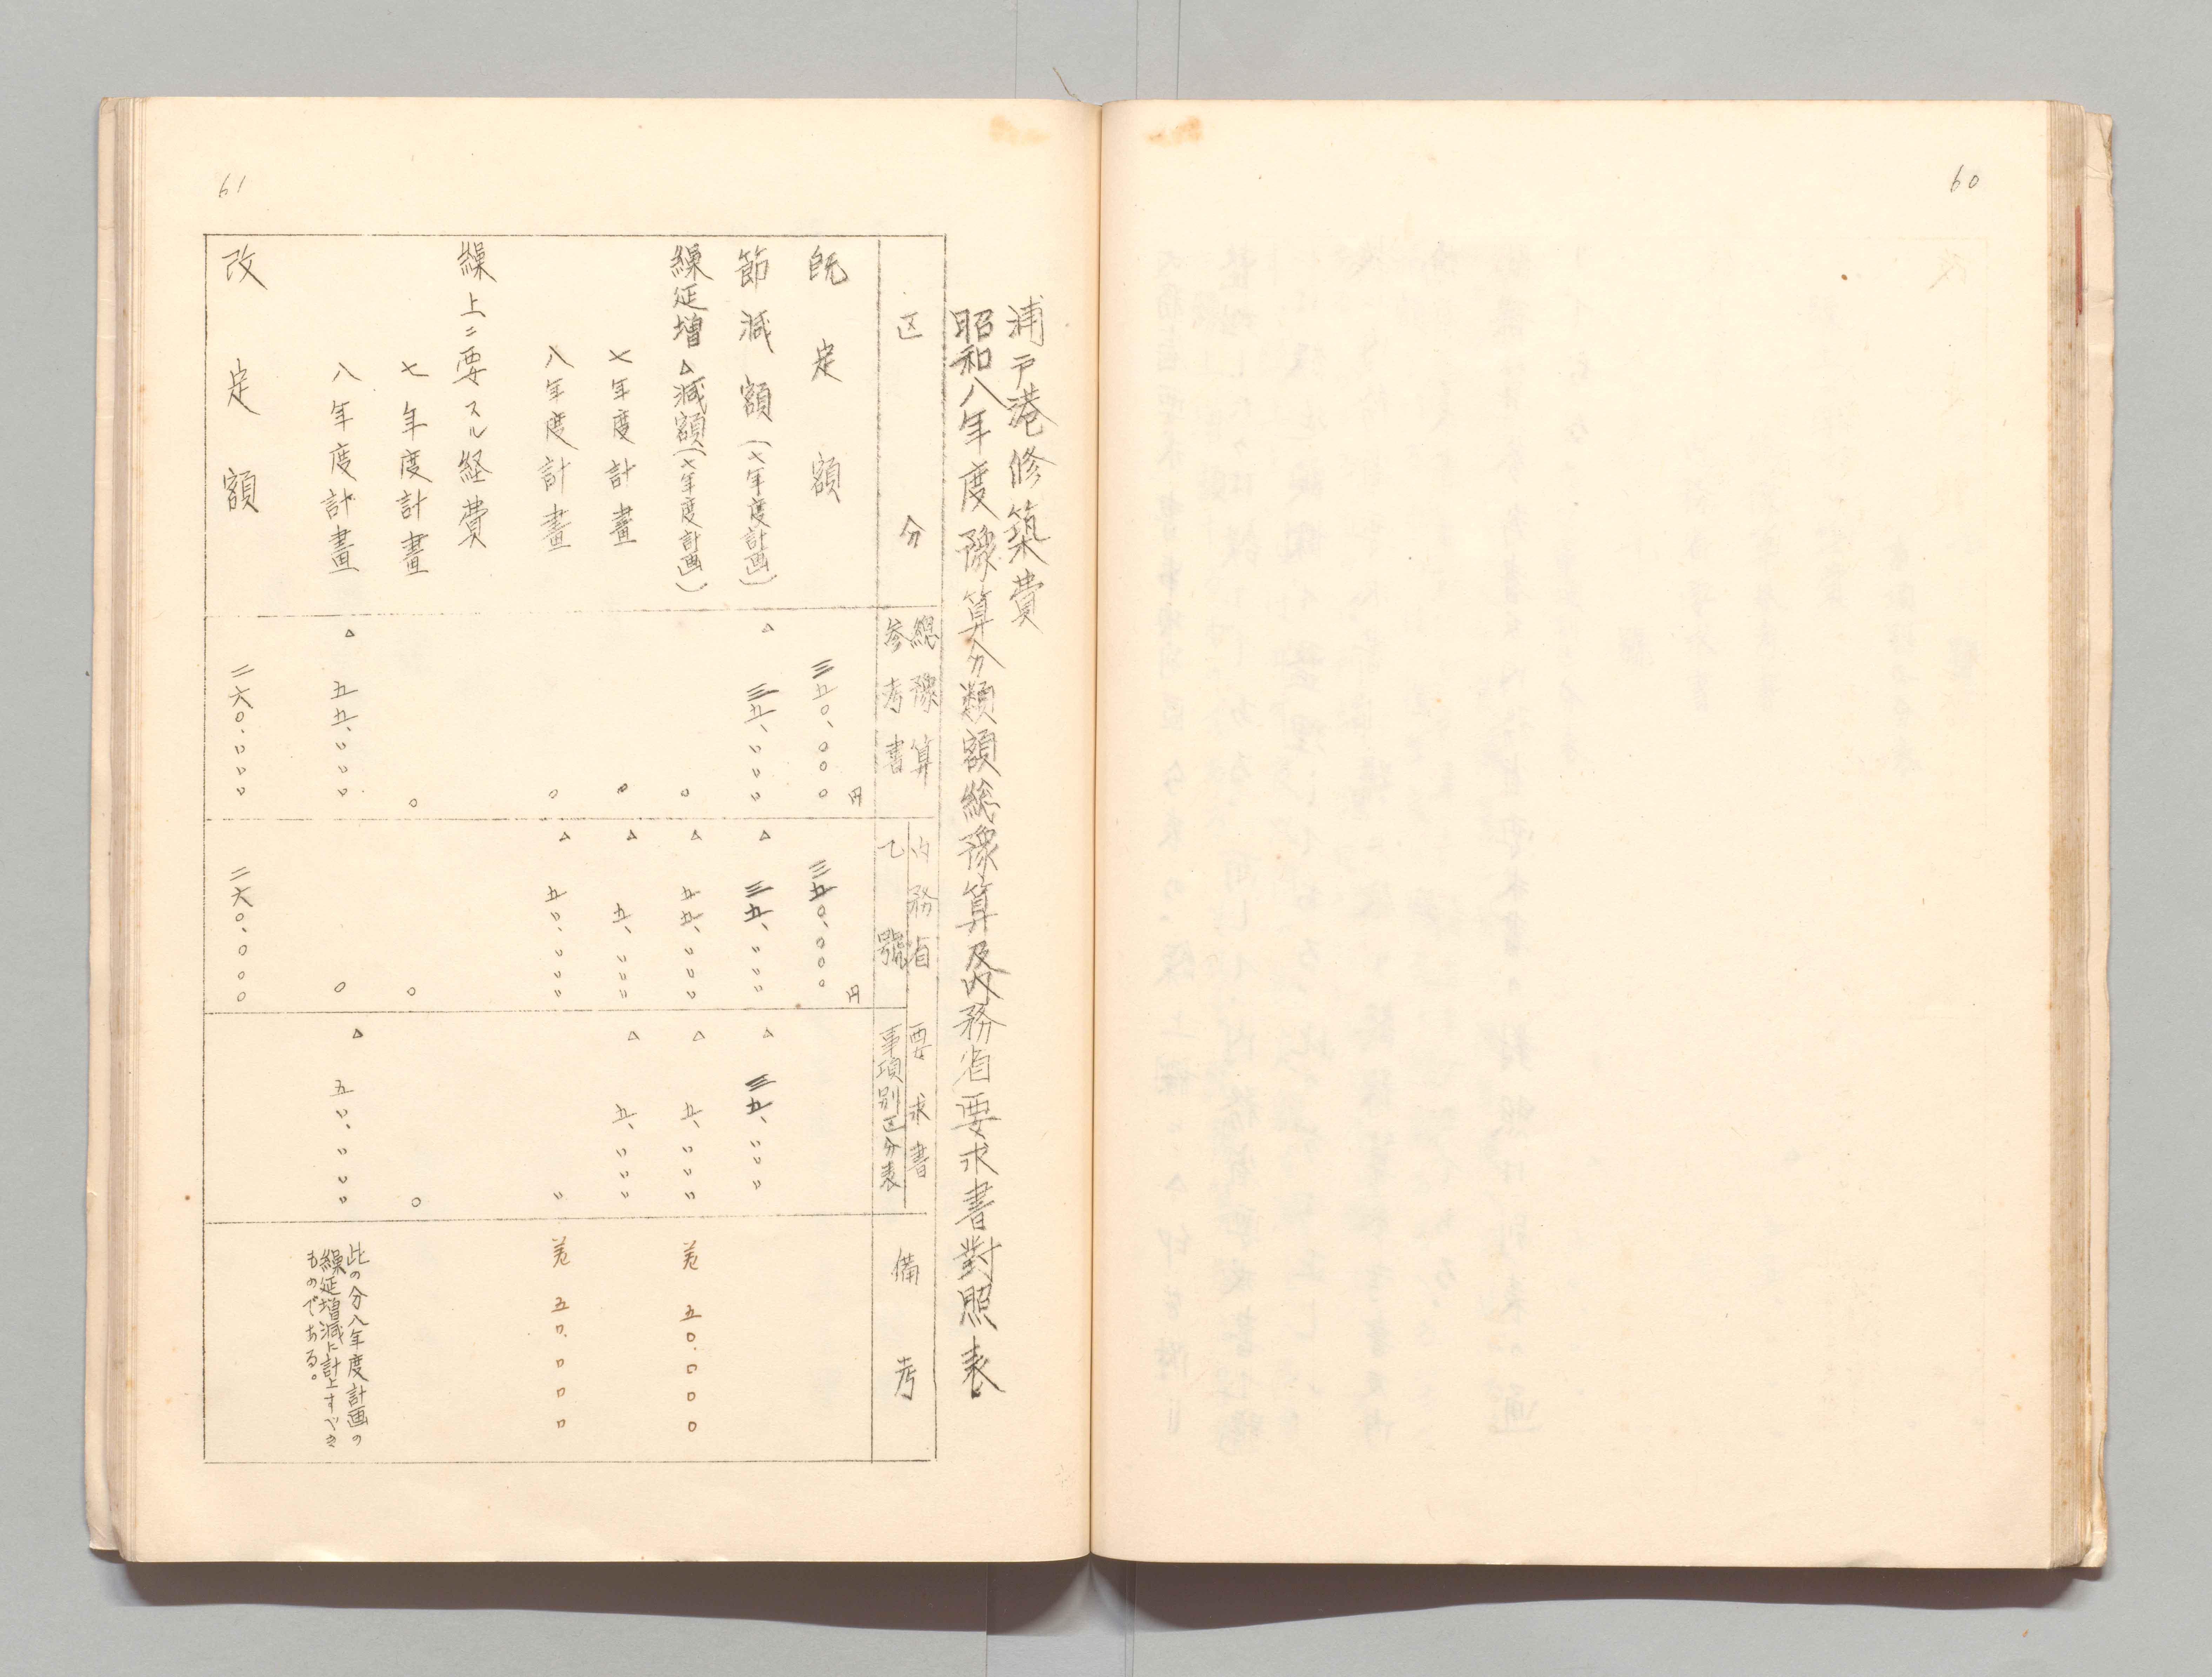 60
61
浦戸港修築費
昭和八年度豫算分類額総豫算及内務省要求書對照表
区分
総豫算
参考書
内務省要求書
乙號
事項別区分表
備考
既定額
三五〇、〇〇〇円
三五〇、〇〇〇円
節減額(七年度計画)
△三五、〃〃〃
△三五、〃〃〃
△三五、〃〃〃
繰延増△減額(七年度計画)
〇
△五五、〃〃〃
△五、〃〃〃
差 五〇、〇〇〇
七年度計畫
〇
△五、〃〃〃
△五、〃〃〃
八年度計畫
〇
△五〃、〃〃〃
〃
差 五〇、〇〇〇
繰上ニ要スル経費
七年度計畫
〇
〇
〇
八年度計畫
△五五、〃〃〃
〇
△五〃、〃〃〃
此の分八年度計画の
繰延増減に計上すべき
ものである。
改定額
二六〇、〃〃〃
二六〇、〇〇〇